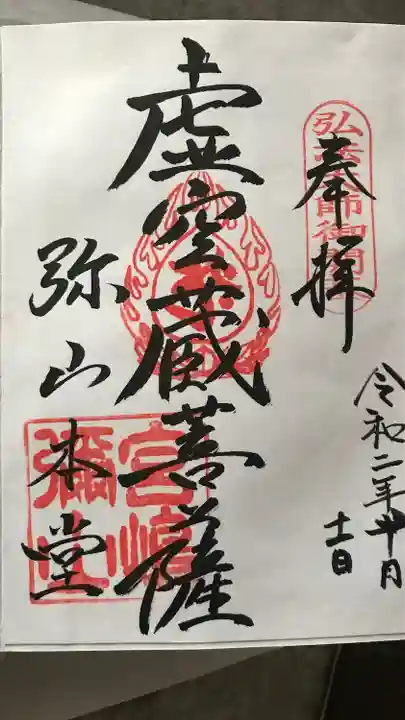 弘法大師御開基
奉拝
令和二年月
十一日
虚空蔵菩薩
弥山本堂
宮嶋
彌山